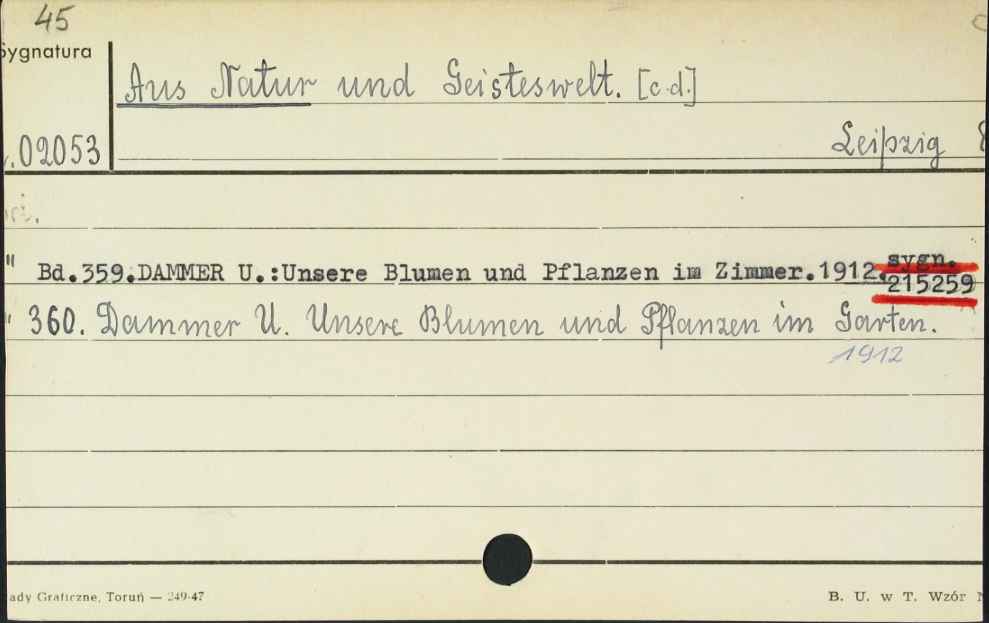 45
Sygnatura
Aus Natur und Geisteswelt. [c.d.]
02053
Leipzig
" Bd.359.DAMMER U.:Unsere Blumen und Pflanzen im Zimmer.1912. sygn.
215259
" 360. Dammer U. Unsere Blumen und Pflanzen im Garten.
1912
ady Graficzne, Toruń — 249-47
B. U. w T. Wzór